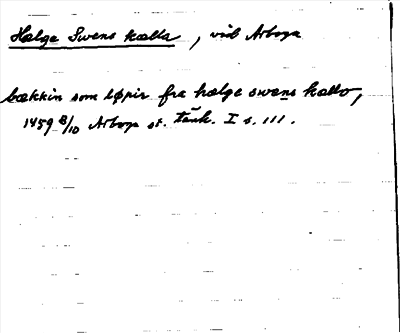 Hælge Swens kælla, vid Arboga
bækkin som løpir fra hælge swens kællo,
1459 8/10 Arboga st. tänk. I s. 111.